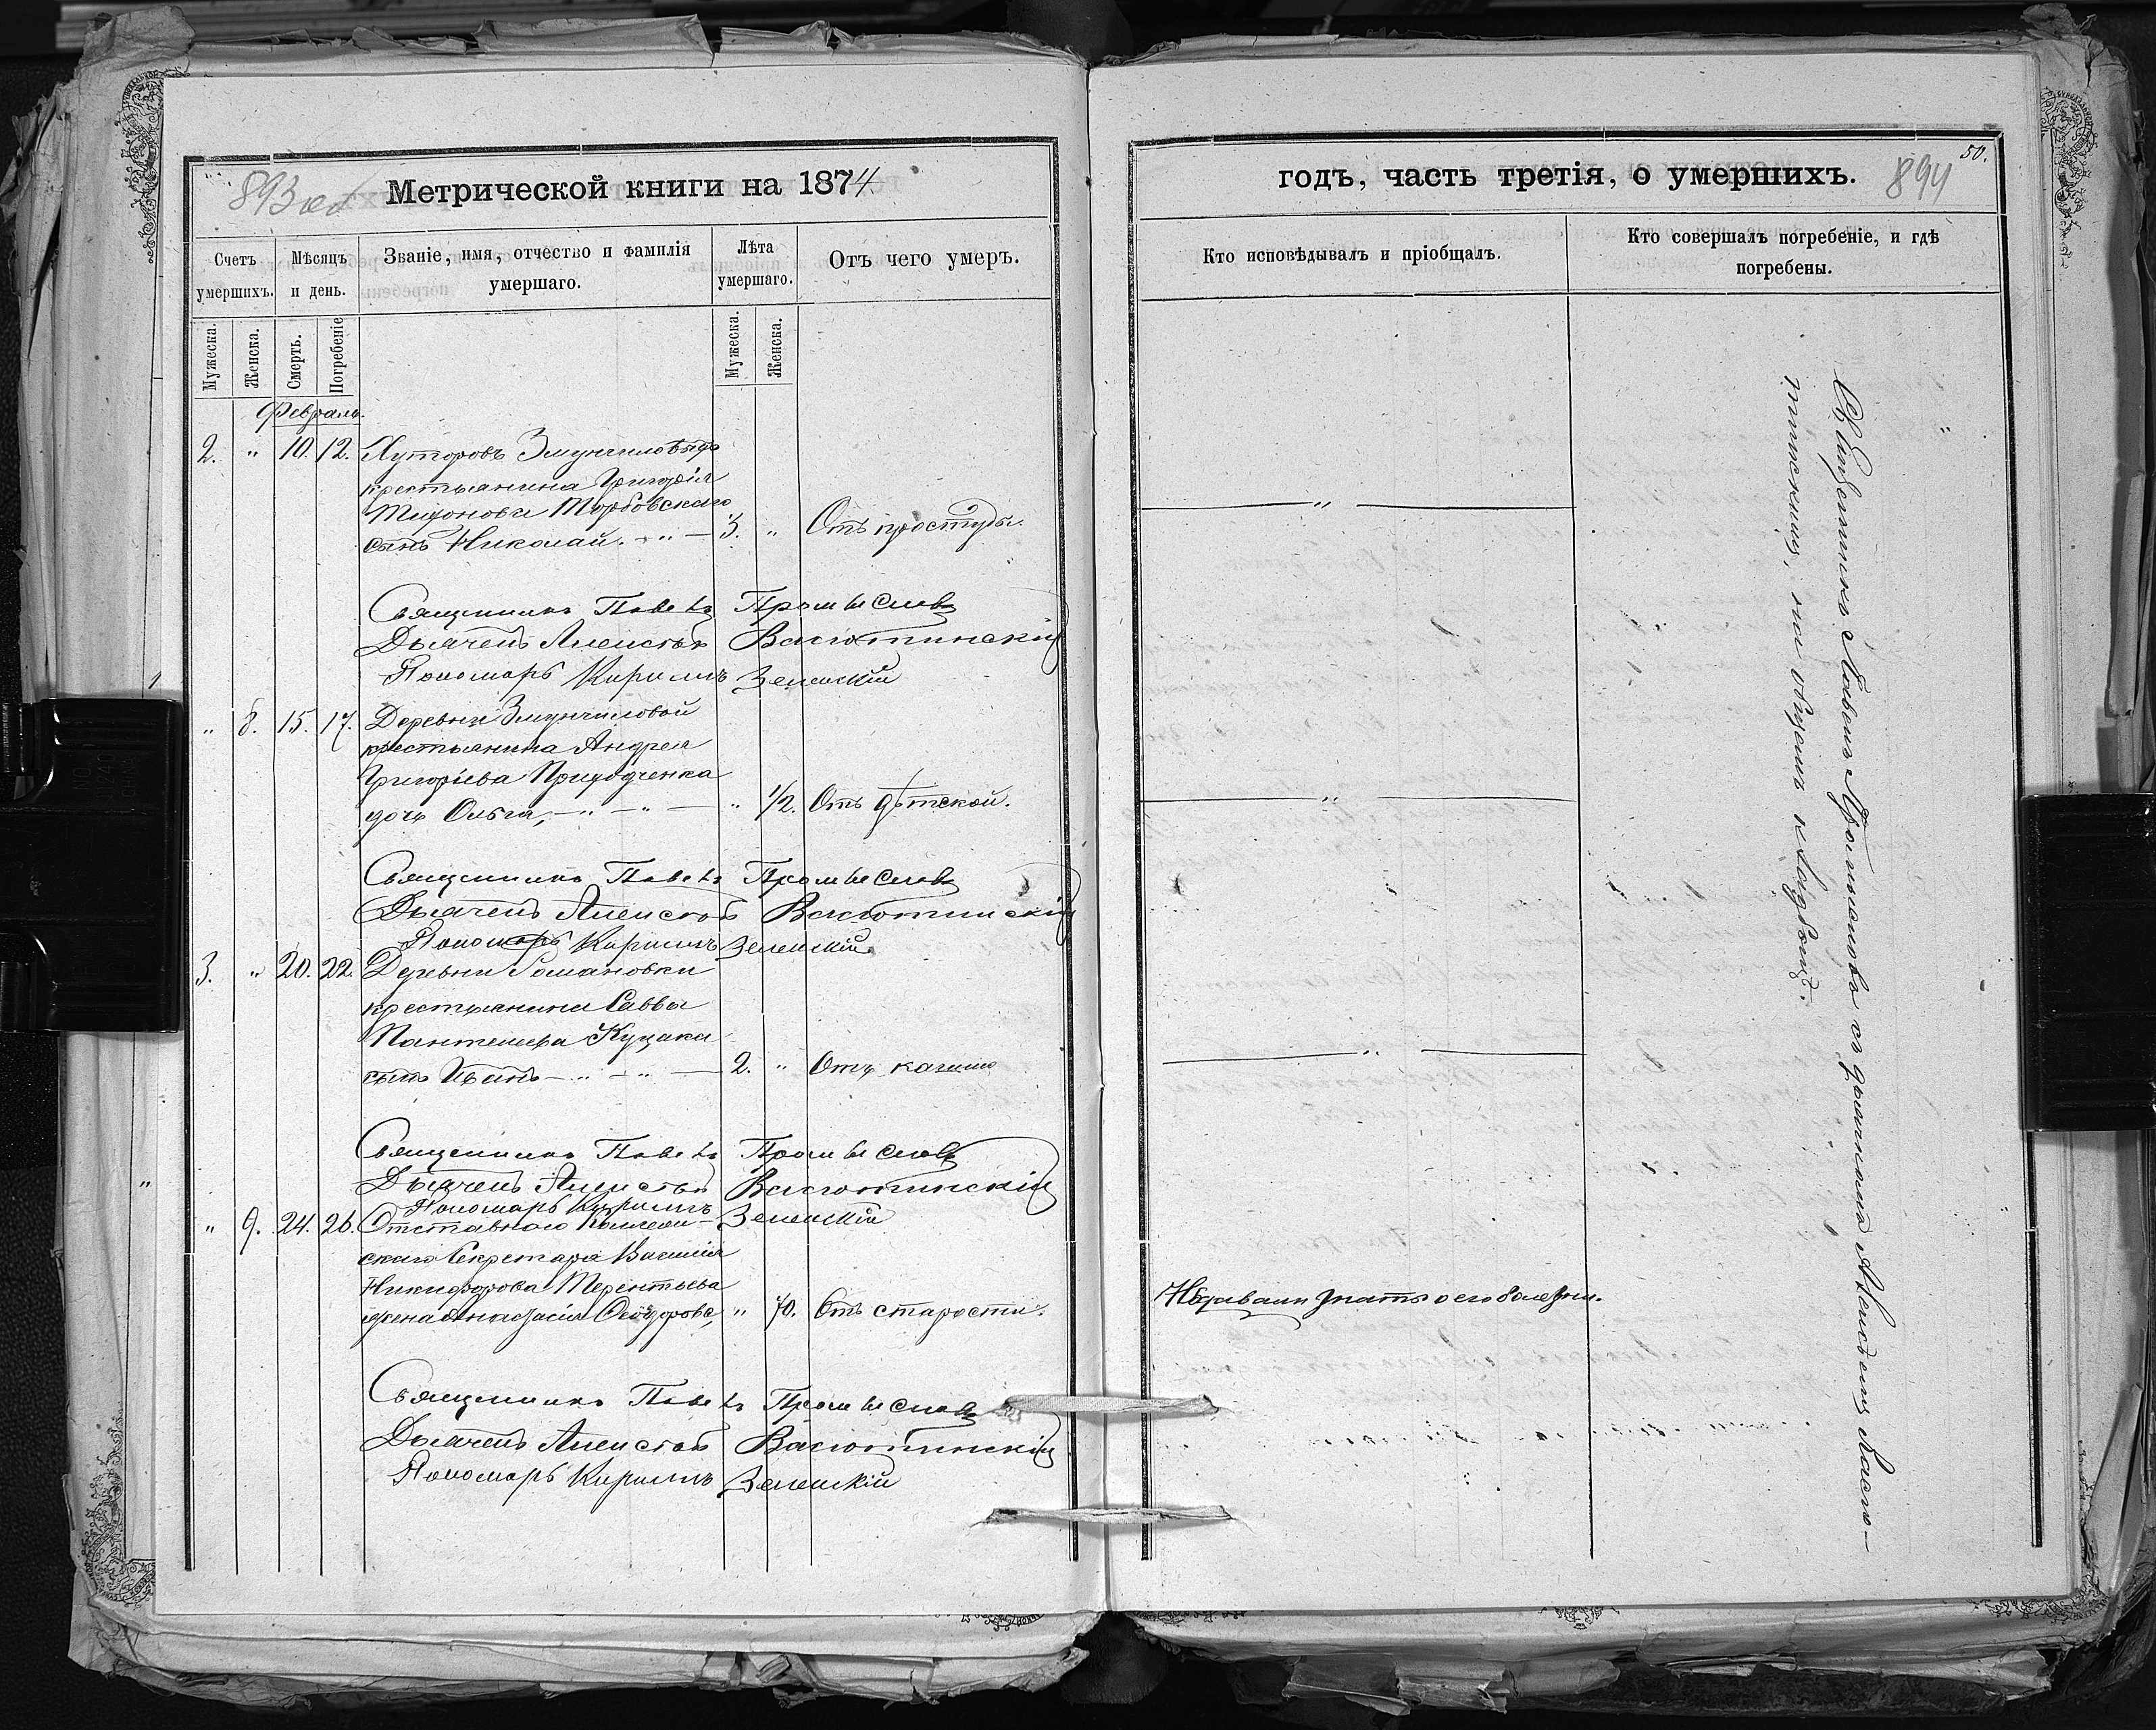 893 об
Метрической книги на 1874
Счетъ умершихъ.
Мѣсяцъ и день.
Званіе, имя, отчество и фамилія умершаго.
Лѣта умершаго.
Отъ чего умеръ.
Мужеска.
Женска.
Смерть.
Погребеніе
Мужеска.
Женска.
Февраль.
2. " 10. 12. Хуторовъ
крестьянина Григорія
сынъ Николай. - " - 3. " Отъ простуды.
Священникъ Павелъ Промысловъ
Дьячекъ Алексѣй Васютинскій
Пономарь Кириллъ Зеленскій
" 8. 15. 17. Деревни
крестьянина Андрея
Григорьева Приходченка
дочь Ольга, - " - " - " 1/2. Отъ дѣтской.
Священникъ Павелъ Промысловъ
Дьячекъ Алексѣй Васютинскій
Пономарь Кириллъ Зеленскій
3. " 20. 22. Деревни Романовки
крестьянина Саввы
Куцака
сынъ Иванъ - " - " - 2. " Отъ кашлю
Священникъ Павелъ Промысловъ
Дьячекъ Алексѣй Васютинскій
Пономарь Кириллъ Зеленскій
" 9. 24. 26. Отставного Коллеж-
скаго Секретаря Василія
Никифорова Терентьева
жена Анастасія Ѳеодорова, " 70. Отъ старости.
Священникъ Павелъ Промысловъ
Дьячекъ Алексѣй Васютинскій
Пономарь Кириллъ Зеленскій
50.
годъ, часть третія, о умершихъ. 894
Кто исповѣдывалъ и пріобщалъ.
Кто совершалъ погребеніе, и гдѣ
погребены.
"
"
"
Не давали знать о его болезни.
Священникъ Павелъ Промысловъ съ дьячкомъ Алексѣемъ Васю-
тинскимъ, на общемъ кладбищѣ.
"